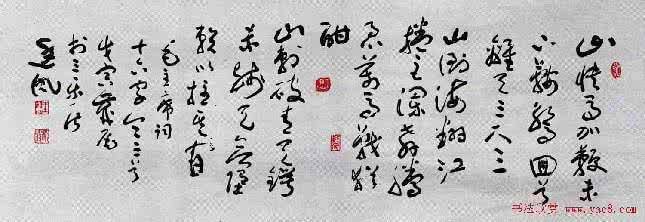 山快马加鞭未
下鞍驚回首
離天三尺三
山倒海翻江
捲巨澜奔腾
急萬马战犹
酣
山刺破青天锷
未残天欲堕
赖以拄其间
毛主席词
十六字令三首
书法欣赏 www.yac8.com